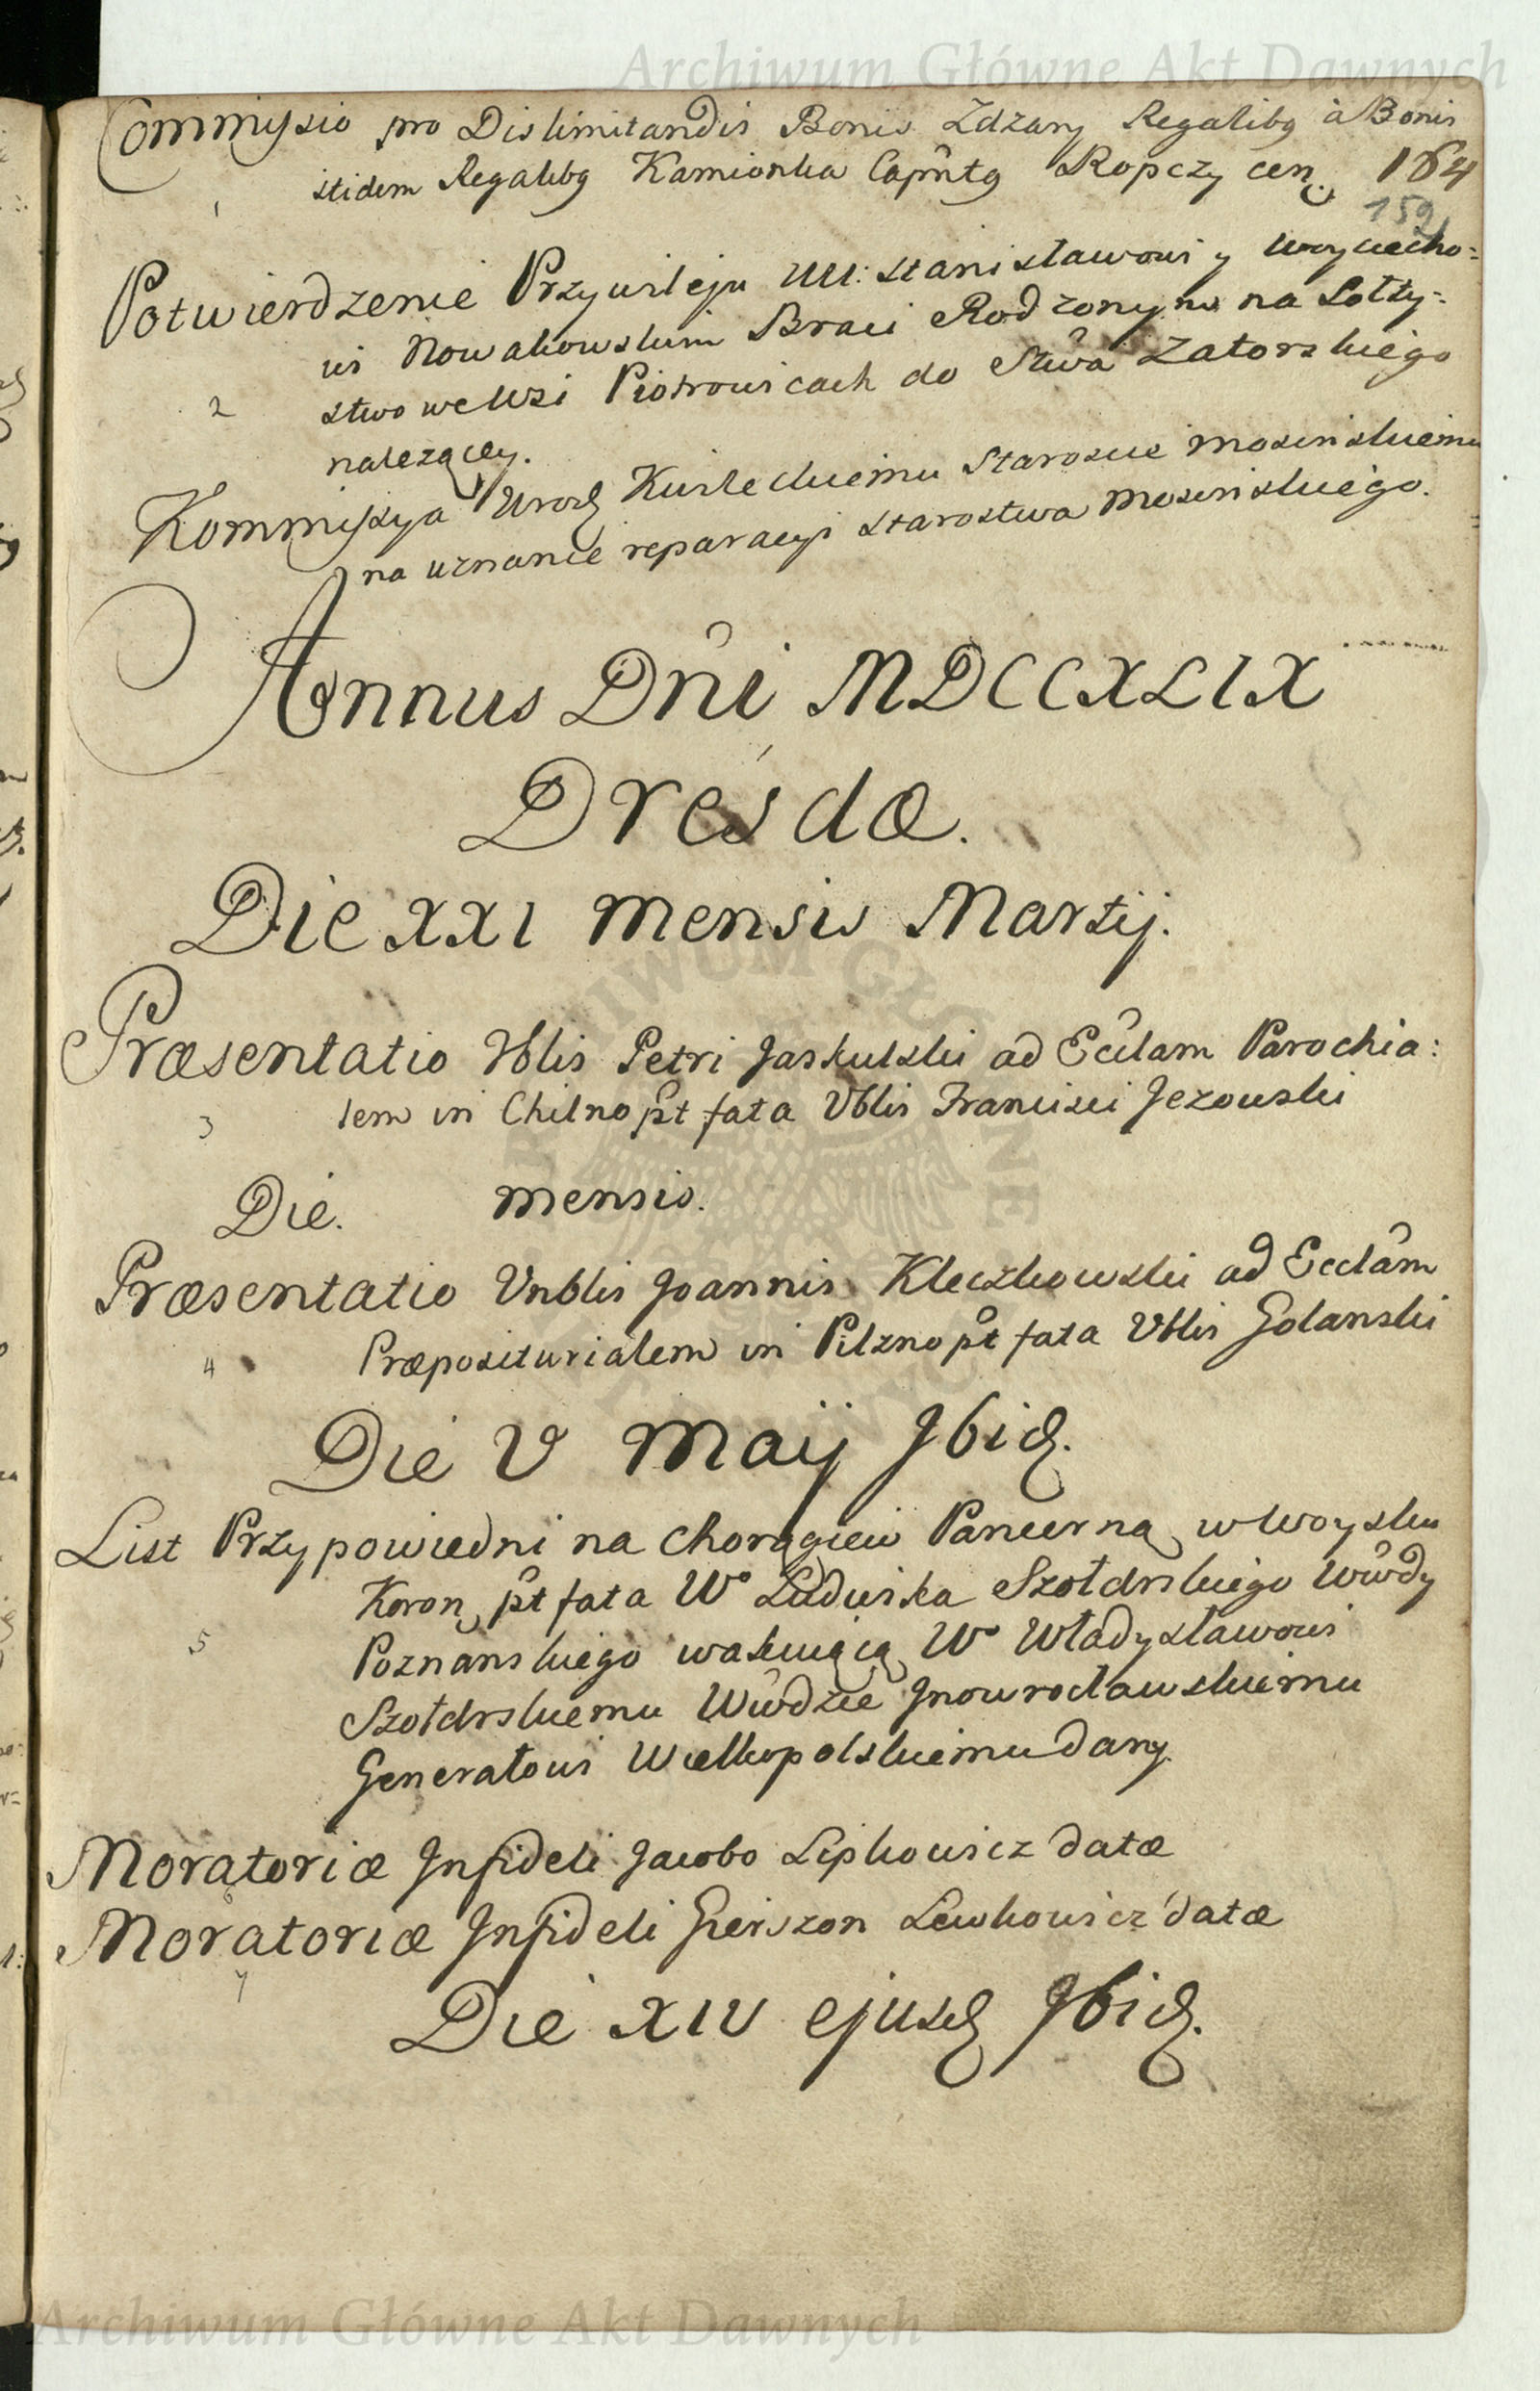 Archiwum Główne Akt Dawnych
Commissio pro Dislimitandis Bonis Zdzary Regalibq à Bonis
itidem Regalibq Kamionka Capńtq Ropczycen. 164
1
159
Potwierdzenie Przywileju UU: Stanisławowi y Woyciecho-
wi Nowakowskim Braci Rodzonym na Sołty-
stwo we Wsi Piotrowicach do Stŵa Zatorskiego
2
należącey.
Kommissya Urodz Kwileckiemu Staroscie Mosinskiemu
na uznanie reparacyi Starostwa Mosinskiego.
Annus Dńi MDCCXLIX
Dresdæ.
Die XXI Mensis Martij.
Præsentatio Vblis Petri Jaskulski ad Ecclam Parochia:
lem in Chelno pt fata Vblis Francisci Jezowski
3
Die. Mensis.
Præsentatio Vnblis Joannis Kleczkowski ad Ecclam
Præposituralem in Pilzno pt fata Vblis Golanski
4
Die V Maij Ibid.
List Przypowiedni na Chorągiew Pancerną w Woysku
Koron pt fata Wo Ludwika Szołdrskiego Wŵdy
5
Poznanskiego wakuiącą Wo Władysławowi
Szołdrskiemu Wŵdzie Inowrocławskiemu
Generałowi Wielkopolskiemu dany.
Moratoriæ Infideli Jacobo Lipkowicz datæ
6
Moratoriæ Infideli Gierszon Lewkowicz datæ
7
Die XIV ejusd Ibid.
Archiwum Główne Akt Dawnych